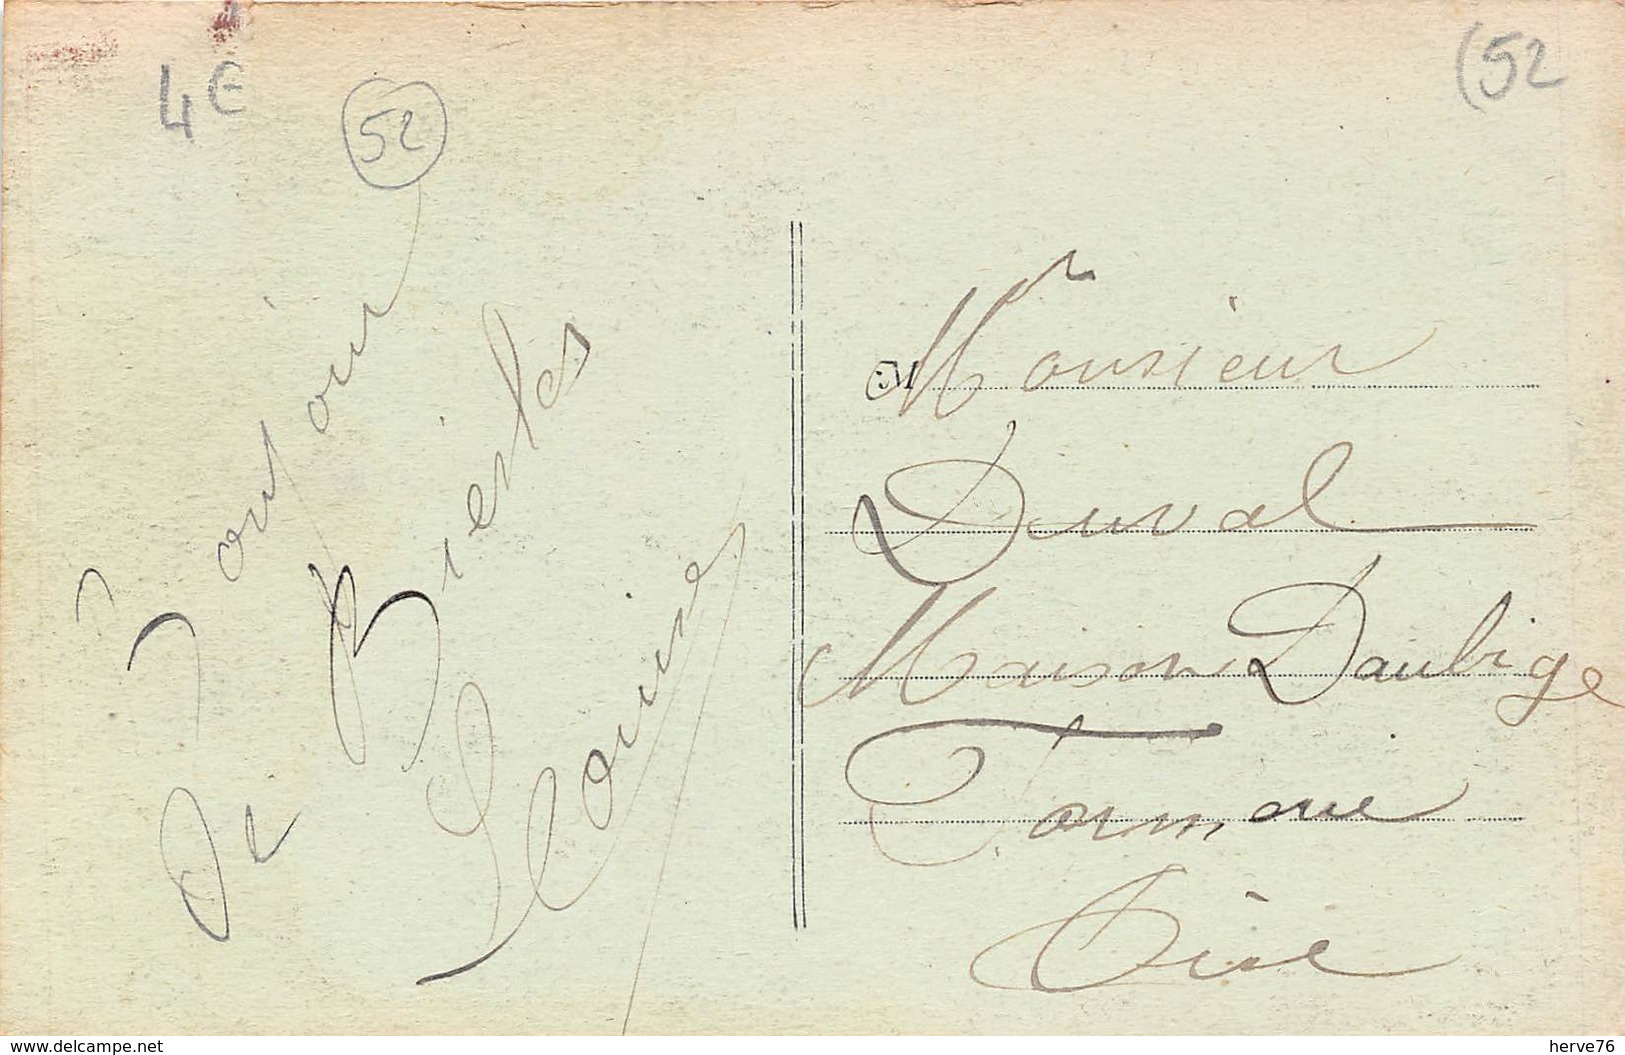 4€
52
(52
Bonjour
De Biesles
Louise
M
Monsieur
Duval
Maison Daubige
Tormone
Oise
delcampe.net
herve76